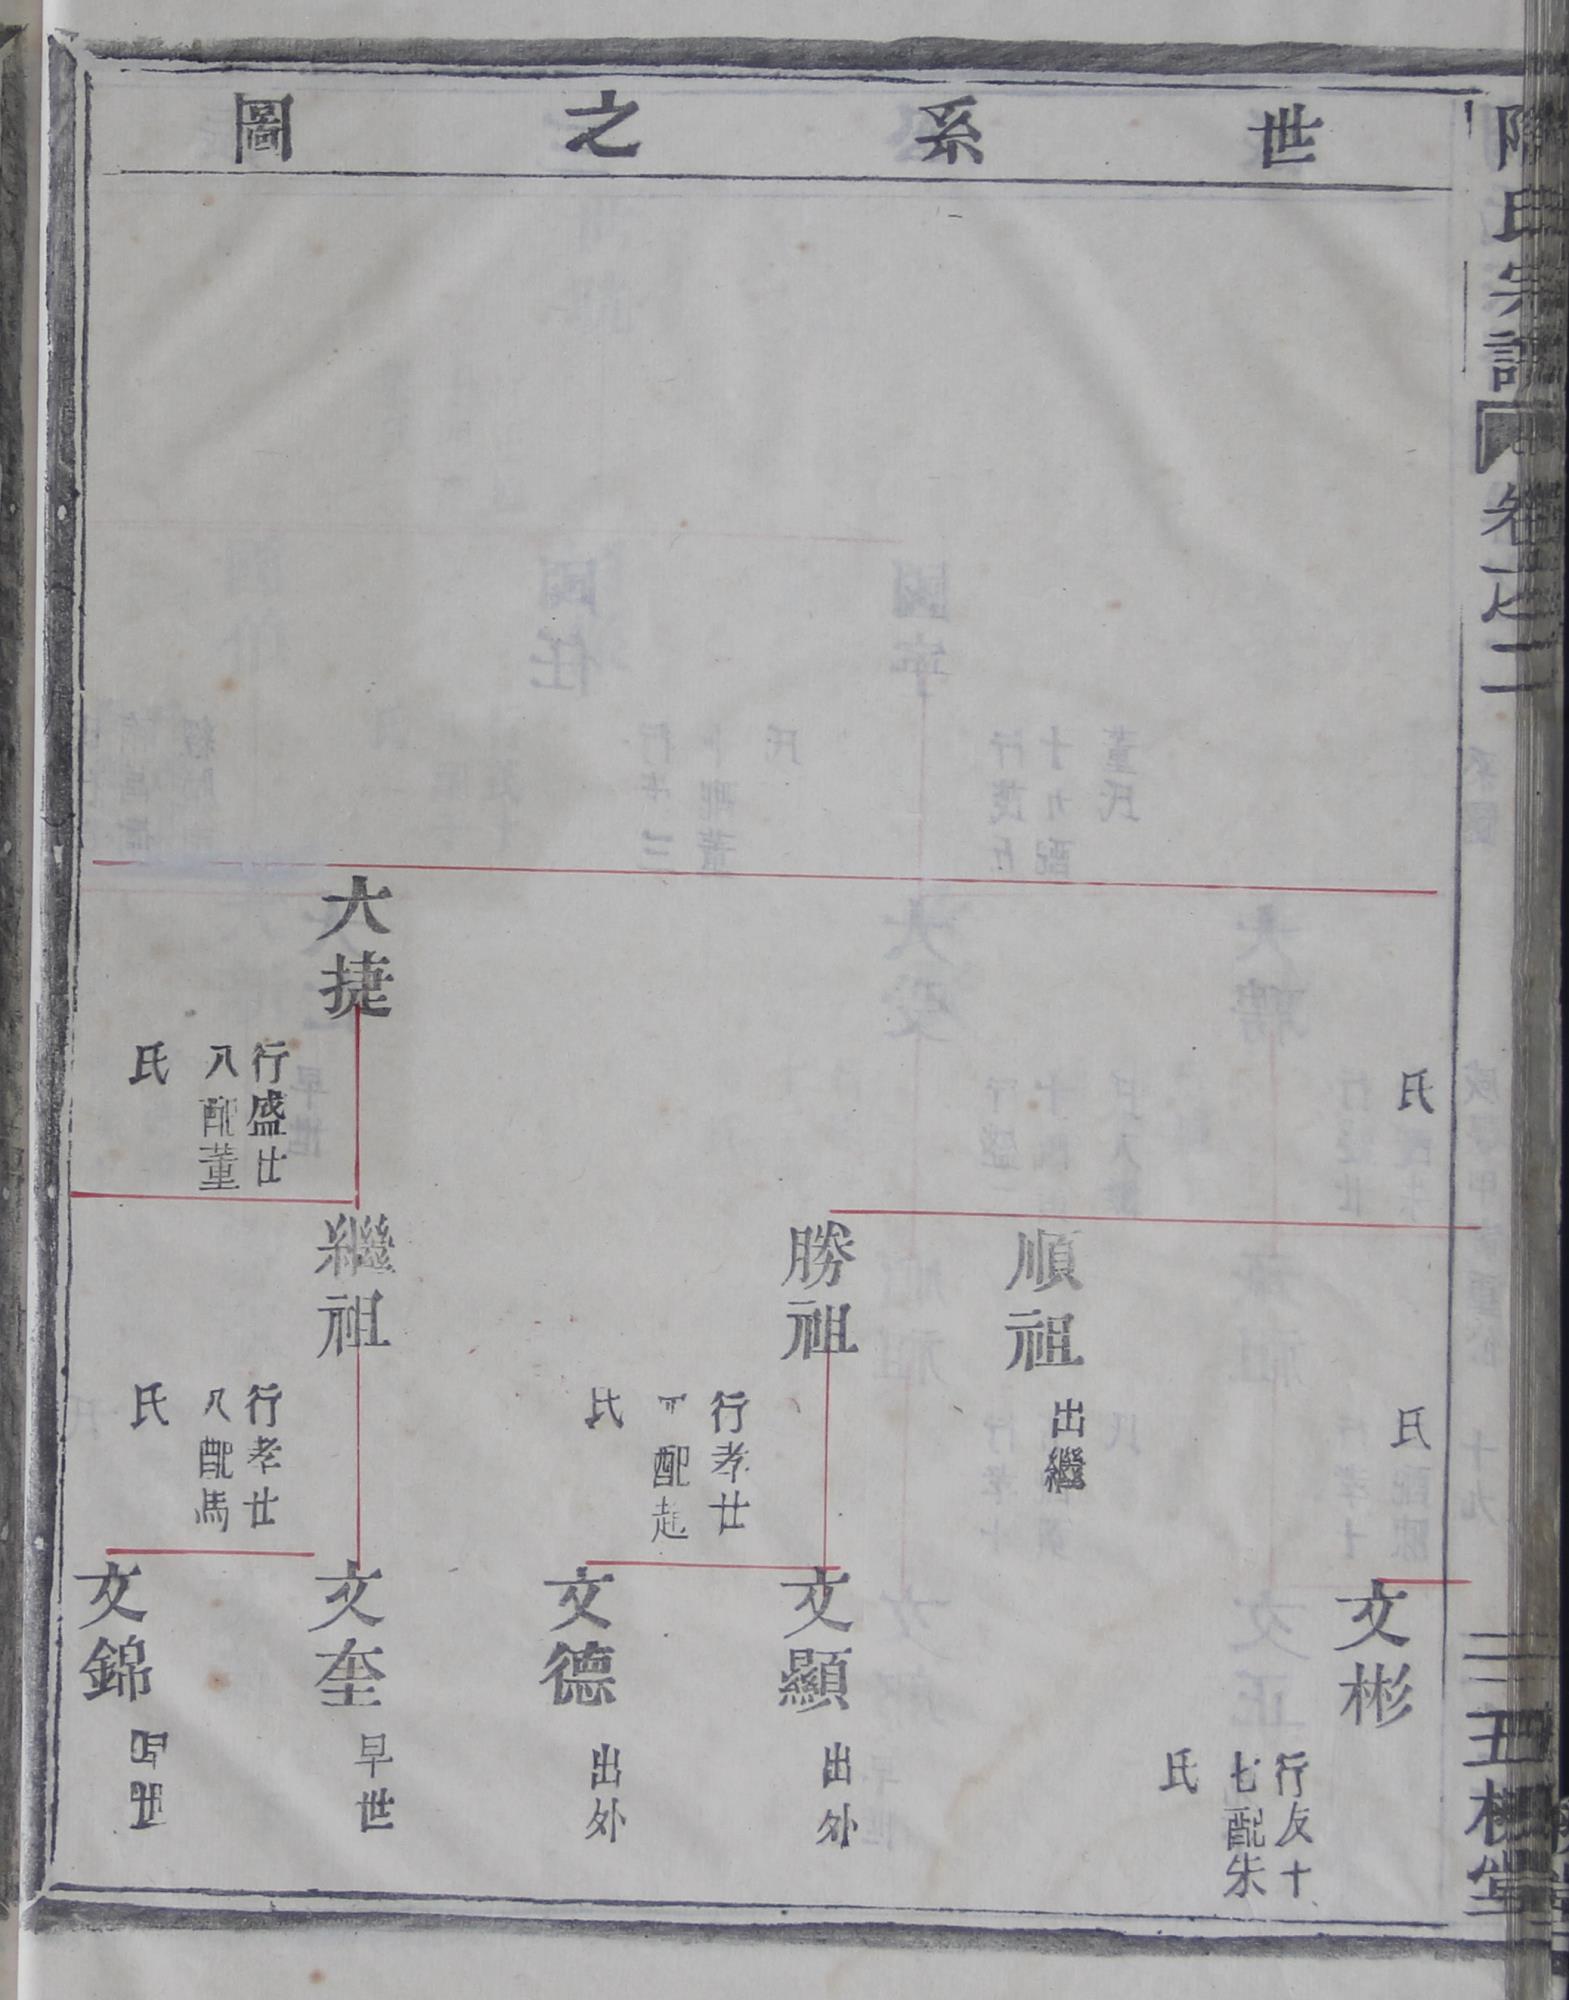 世系之圖
氏宗譜
卷之二
氏
大捷
行盛廿
八配董
氏
順祖
出繼
勝祖
行孝廿
配趙
氏
繼祖
行孝廿
八配馬
氏
氏
文彬
行友十
七配朱
氏
文顯
出外
文德
出外
文奎
早世
文錦
早世